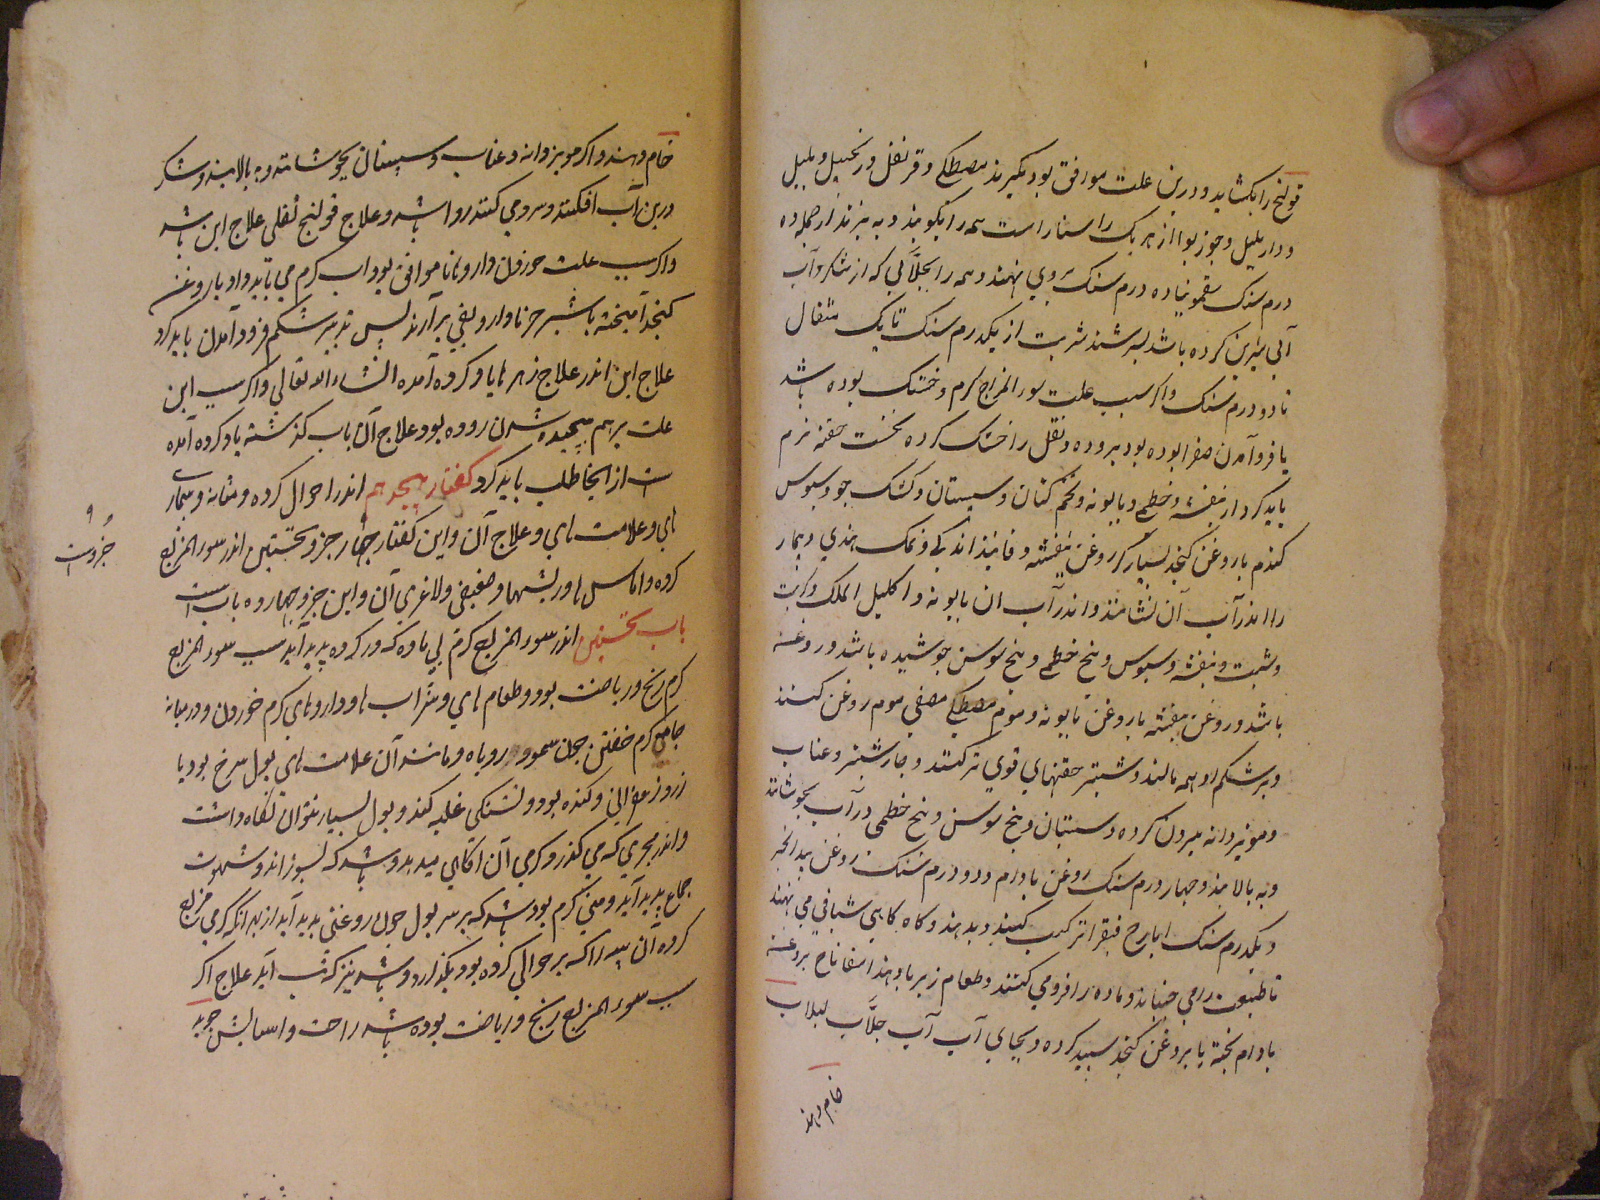 قولنج را بکشاید و درین علت موافق بود بکیرند مصطکی و قرنفل و زنجبیل و بلیل
و دار بلیل و جوز بوا از هر یک راستا راست همه را بکوبند و به بیزند از جمله ده
درم سنک سقمونیا ده درم سنک بروی نهند و همه را بجلابی که از شکر و آب
آبی شیرین کرده باشد بسرشند شربت از یکدرم سنک تا یک مثقال
تا دو درم سنک و اکر سبب علت سوء المزاج کرم و خشک بوده باشد
یا فرو آمدن صفرا بوده بود بروده و ثفل را خشک کرده نخست حقنه نرم
باید کرد از بنفشه و خطمی و بابونه و تخم کتان و سپستان و کشک جو و سبوس
کندم با روغن کنجد بسیار کر روغن بنفشه و فانیذ اندکی و نمک هندی و بیمار
را اندر آب آن نشانند و اندر آب ان بابونه و اکلیل الملک و کرنب
و شبت و بنفشه و سبوس و بیخ خطمی و بیخ سوسن جوشیده باشد و روغنه
باشد و روغن بنفشه با روغن بابونه و موم مصطکی مصفی موم روغن کنند
و بر شکم او همه مالند و شبتر حقنهای قوی تر کنند و خیارشنبر و عناب
و مویز دانه بیرون کرده و سپستان و بیخ سوسن و بیخ خطمی در آب بجوشانند
و به بالایند و چهار درم سنک روغن بادام و دو درم سنک روغن بیدانجیر
و یکدرم سنک ایارج فیقرا ترکیب کنند و بدهند و کاه کاهی شیافی می نهند
تا طبیعت را می جنباند و ماده را فرو می کنند و طعام زیربا دهند اسفاناخ بروغنه
بادام پخته یا بروغن کنجد سپید کرده و بجای آب آب جلاب لبلاب
خام دهند
خام دهند و اکر مویز دانه و عناب و سپستان بجوشانند و به بالایند و شکر
درین آب افکنند و سرد می کنند روا باشد و علاج قولنج ثفلی علاج این باشد
و اکر سبب علت خوردن داروها ناموافق بود آب کرم می باید داد با روغن
کنجد آمیخته باشبر جزنا دارو بقی برآرند پس تدبیر شکم فرود آمدن باید کرد
علاج این اندر علاج زهرها یاد کرده آمده انشاء الله تعالی و اکر سبب این
علت برهم پیچیده شدن روده بود علاج آن باب کذشته یاد کرده آمده
است از انجا طلب باید کرد کفتار هیجدهم اندر احوال کرده و مثانه و بیمار
ای و علامت های و علاج آن و این کفتار چهار جزو نخستین اندر سوء المزاج
کرده و اماس ها و ریشها و ضعیفی و لاغری آن و این جزو چهارده باب است
باب نخستین اندر سوء المزاج کرم بی ماده که در کرده پدید آید سبب سوء المزاج
کرم رنج و ریاضت بود و طعام های و شراب ها و داروهای کرم خوردن و در میانه
جامه کرم خفتن چون سمور و روباه و مانند آن علامت های بول سرخ بود یا
زرد زعفرانی و کنده بود و تشنکی غلبه کند و بول بسیار نتوان نکاه داشت
و اندر مجری که می کذرد کرمی آن آکاهی میدهد و باشد که بسوزاند و شهوت
جماع پدید آید و منی کرم بود باشد که بر سر بول چون روغنی پدید آید از بهر آنکه کرمی مزاج
کرده آن پیه را که بر حوالی کرده بود بکذارد و باشد نیز که تب آید علاج اکر
سبب سوء المزاج رنج و ریاضت بوده باشد راحت و اسایش جوید
جزوت